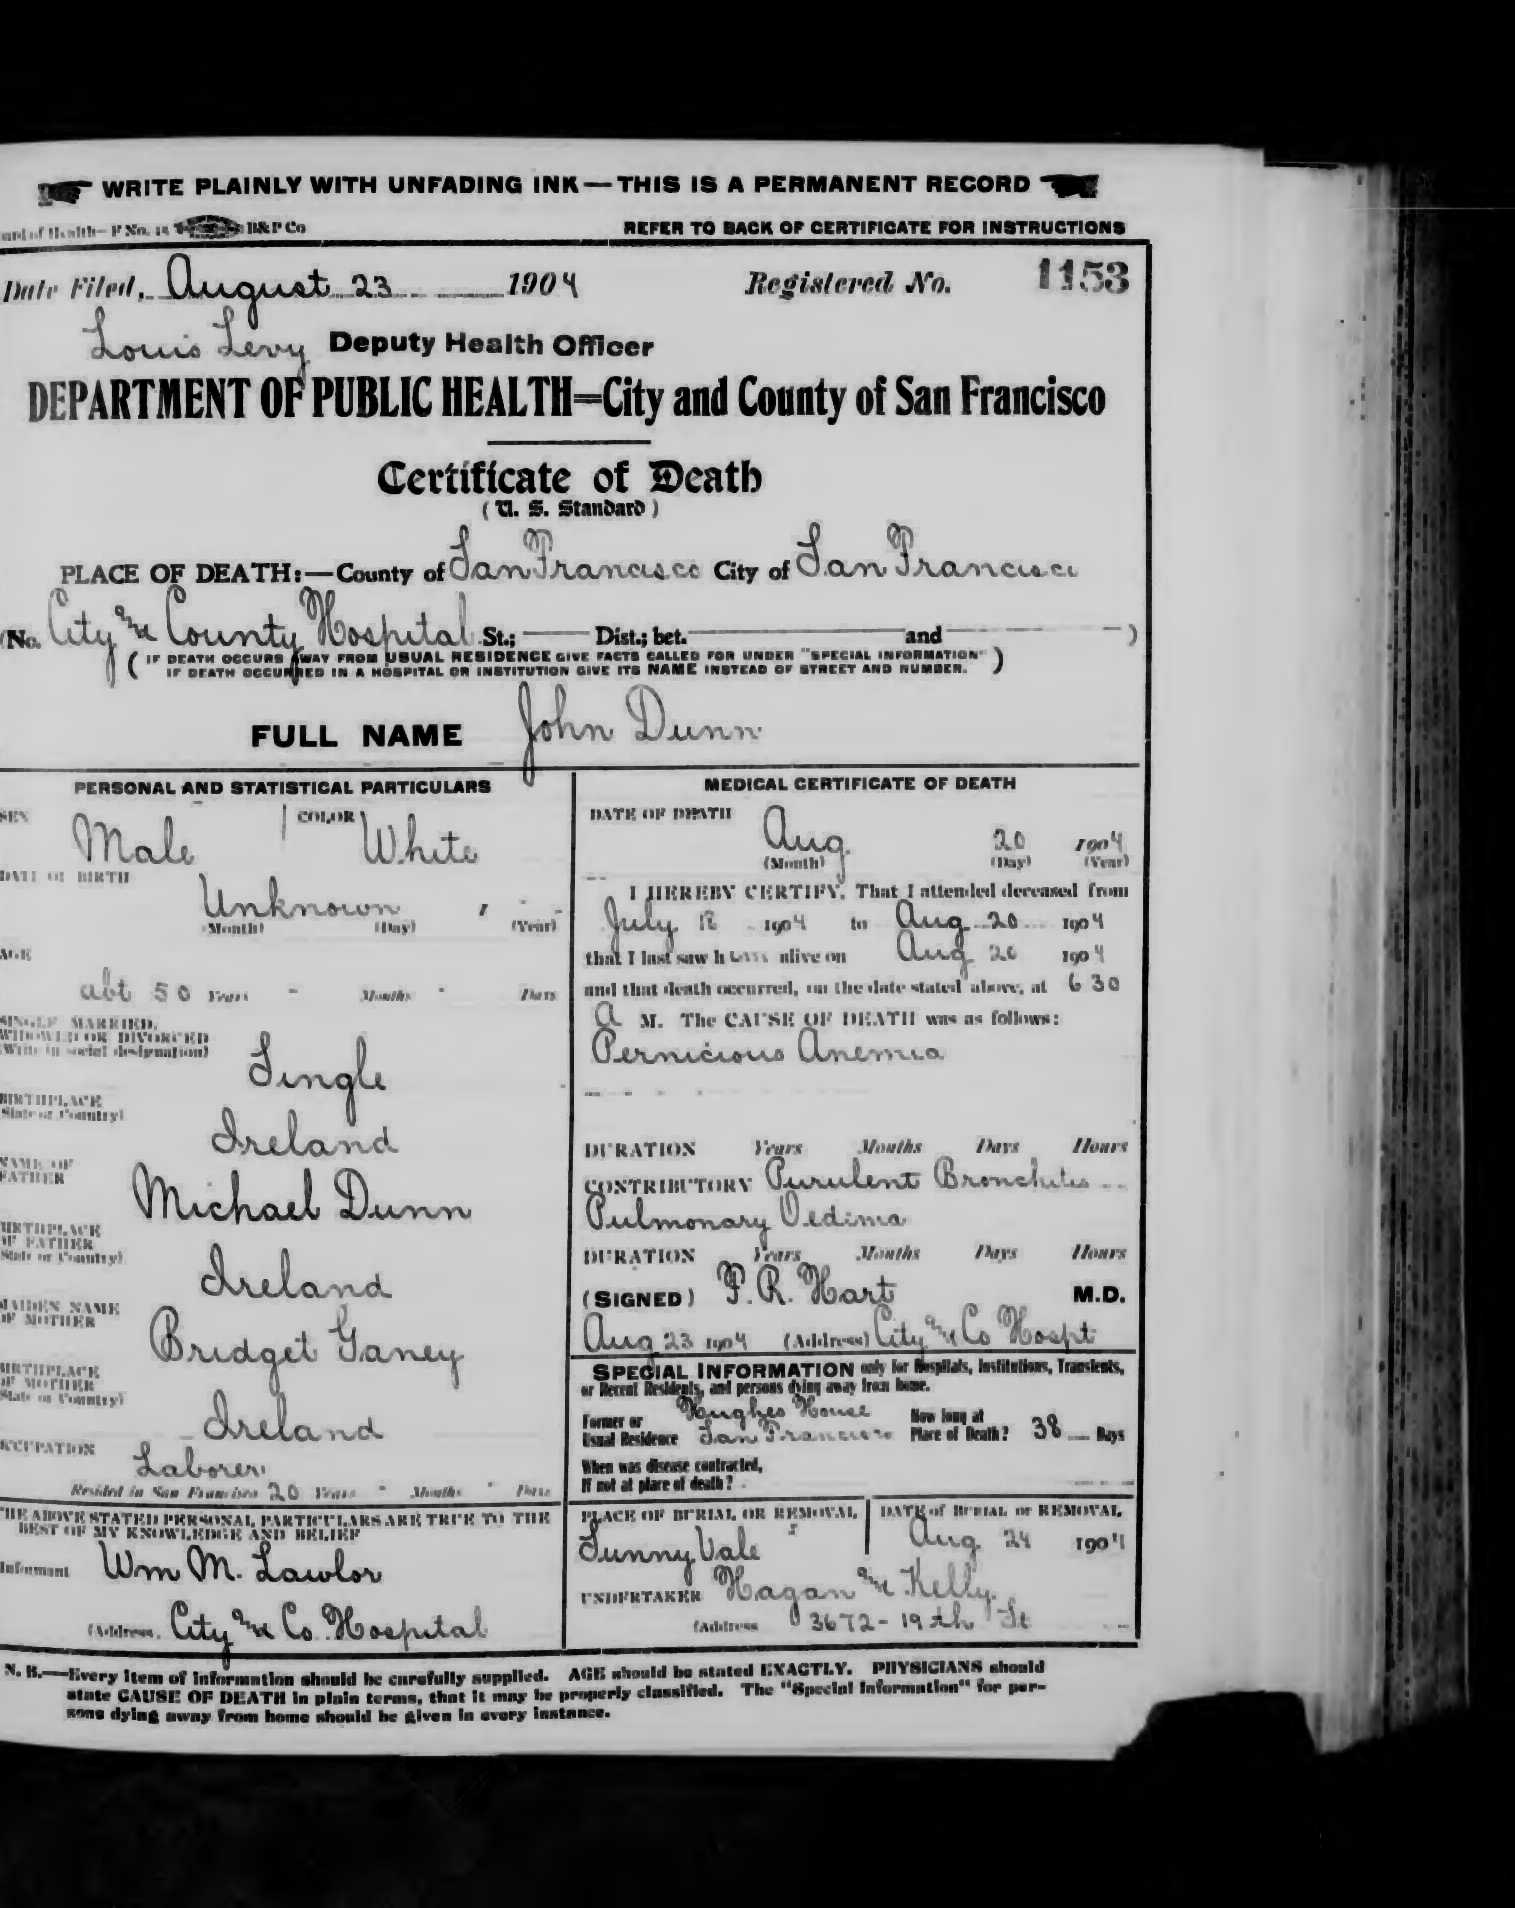 WRITE PLAINLY WITH UNFADING INK—THIS IS A PERMANENT RECORD
of Health—F No. 15 B&P Co REFER TO BACK OF CERTIFICATE FOR INSTRUCTIONS
Date Filed, August 23 1904 Registered No. 1153
Louis Levy Deputy Health Officer
DEPARTMENT OF PUBLIC HEALTH=City and County of San Francisco
Certificate of Death
(U. S. Standard)
PLACE OF DEATH:—County of San Francisco City of San Francisco
(No. City and County Hospital St.; Dist.; bet. and )
(IF DEATH OCCURS AWAY FROM USUAL RESIDENCE GIVE FACTS CALLED FOR UNDER "SPECIAL INFORMATION"
IF DEATH OCCURRED IN A HOSPITAL OR INSTITUTION GIVE ITS NAME INSTEAD OF STREET AND NUMBER.)
FULL NAME John Dunn
PERSONAL AND STATISTICAL PARTICULARS
SEX Male COLOR White
DATE OF BIRTH
Unknown
(Month) (Day) (Year)
AGE
abt 50 Years - Months - Days
SINGLE MARRIED,
WIDOWED OR DIVORCED
(Write in social designation)
Single
BIRTHPLACE
(State or Country)
Ireland
NAME OF
FATHER
Michael Dunn
BIRTHPLACE
OF FATHER
(State or Country)
Ireland
MAIDEN NAME
OF MOTHER
Bridget Ganey
BIRTHPLACE
OF MOTHER
(State or Country)
Ireland
OCCUPATION
Laborer
Resided in San Francisco 20 Years - Months - Days
THE ABOVE STATED PERSONAL PARTICULARS ARE TRUE TO THE
BEST OF MY KNOWLEDGE AND BELIEF
Informant Wm M. Lawlor
(Address. City and Co. Hospital
MEDICAL CERTIFICATE OF DEATH
DATE OF DEATH
Aug. 20 1904
(Month) (Day) (Year)
I HEREBY CERTIFY, That I attended deceased from
July 18 1904 to Aug 20 1904
that I last saw him alive on Aug 20 1904
and that death occurred, on the date stated above, at 6 30
A M. The CAUSE OF DEATH was as follows:
Pernicious Anemia
DURATION Years Months Days Hours
CONTRIBUTORY Purulent Bronchitis
Pulmonary Oedima
DURATION Years Months Days Hours
(SIGNED) F. R. Hart M.D.
Aug 23 1904 (Address) City and Co Hospt
SPECIAL INFORMATION only for Hospitals, Institutions, Transients,
or Recent Residents, and persons dying away from home.
Former or
Usual Residence Hughes House
San Francisco How long at
Place of Death? 38 Days
When was disease contracted,
If not at place of death?
PLACE OF BURIAL OR REMOVAL DATE of BURIAL or REMOVAL
Sunny Vale Aug 24 1904
UNDERTAKER Hagan and Kelly.
(Address 3672-19th St
N. B.—Every item of information should be carefully supplied. AGE should be stated EXACTLY. PHYSICIANS should
state CAUSE OF DEATH in plain terms, that it may be properly classified. The "Special Information" for per-
sons dying away from home should be given in every instance.